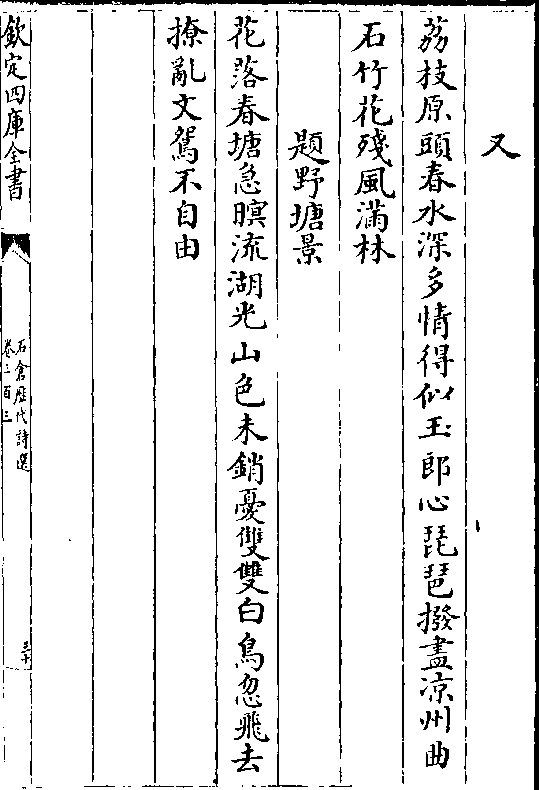 又
荔枝原頭春水深多情得似玉郎心琵琶撥盡凉州曲
石竹花殘風滿林
題野塘景
花落春塘急暝流湖光山色未銷憂雙雙白鳥忽飛去
撩亂文鴛不自由
欽定四庫全書
石倉歷代詩選
卷三百三
三十